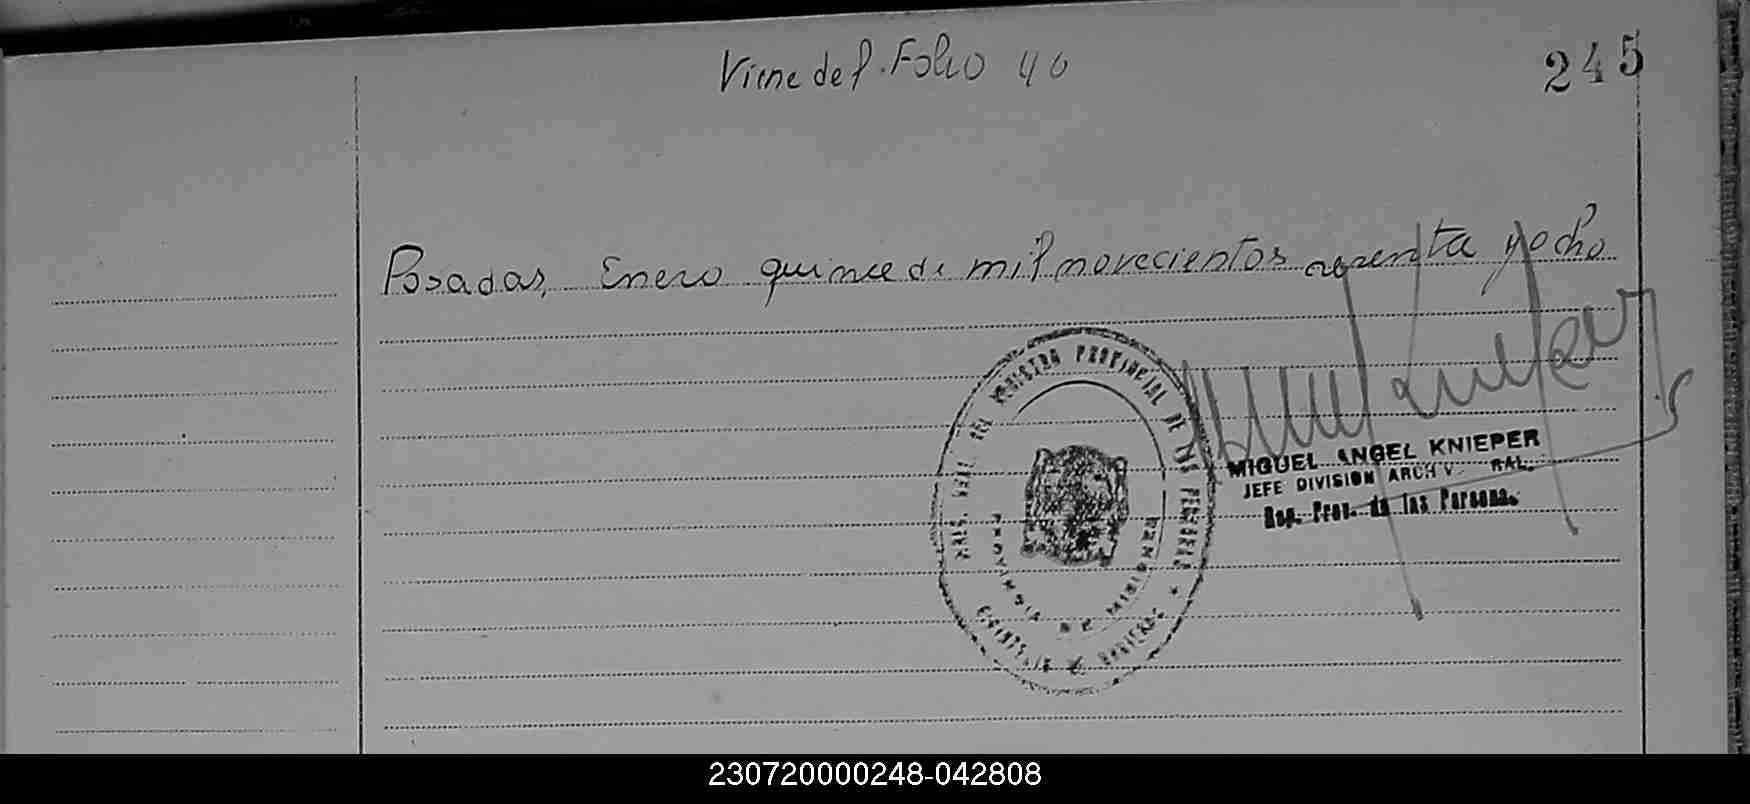 Viene del Folio 40
245
Posadas, Enero quince de mil novecientos ochenta y ocho
REGISTRO PROVINCIAL DE LAS PERSONAS
PROVINCIA DE MISIONES
MIGUEL ANGEL KNIEPER
JEFE DIVISION ARCH
Reg. Prov. de las Personas
230720000248-042808